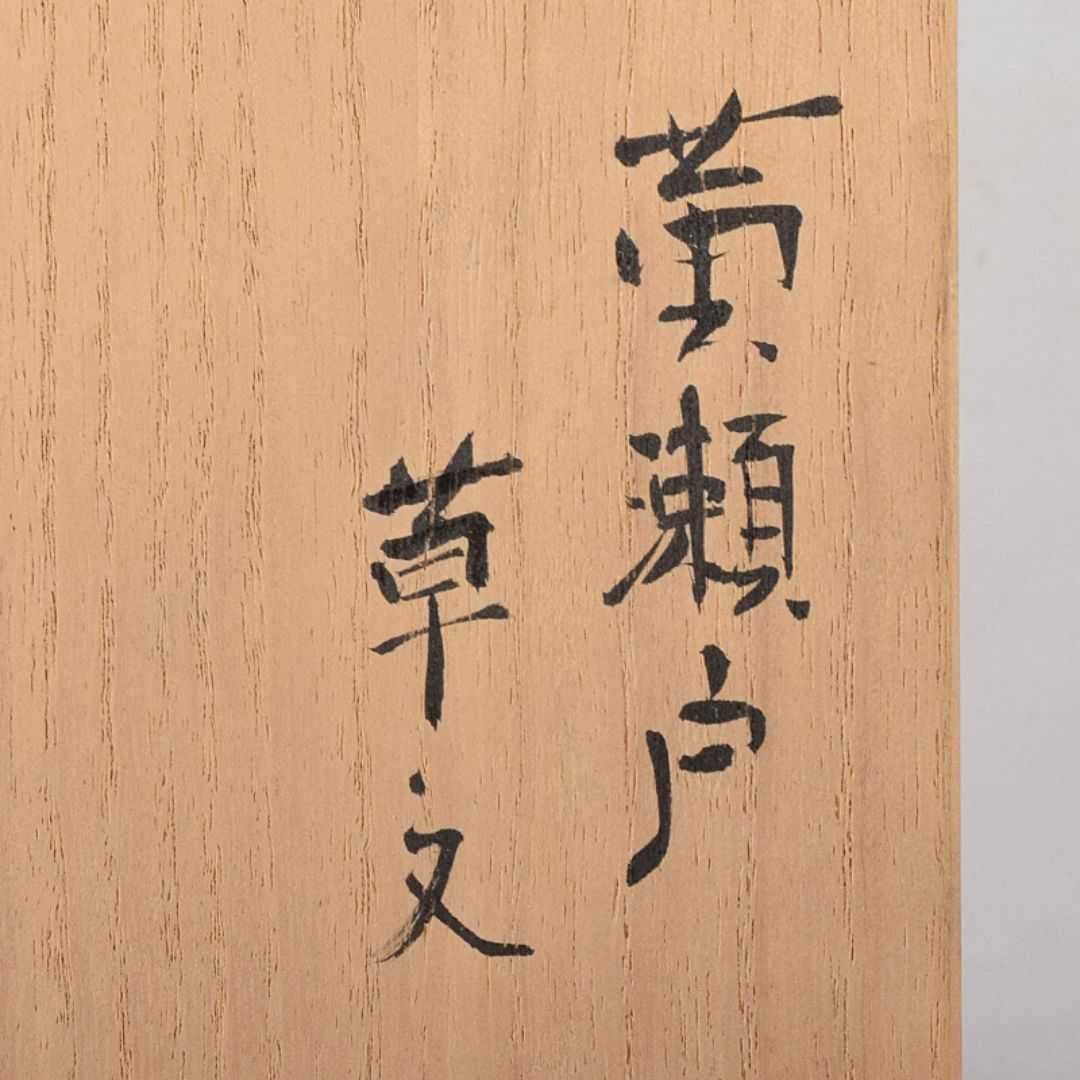 黄瀬戸
草文